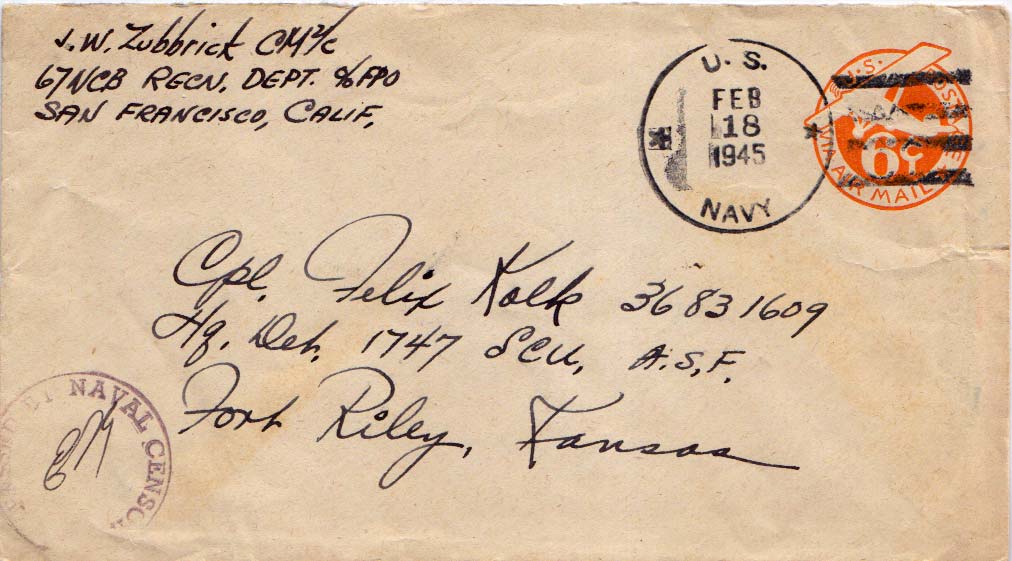 J. W. Zubbrick CM2/c
67 NCB RECN. DEPT. % FPO
SAN FRANCISCO, CALIF.
U. S.
FEB
18
1945
NAVY
U.S. POSTAGE
6¢
VIA AIR MAIL
Cpl. Felix Kolk 36831609
Hq. Det. 1747 SCU, A.S.F.
Fort Riley, Kansas
PASSED BY NAVAL CENSOR